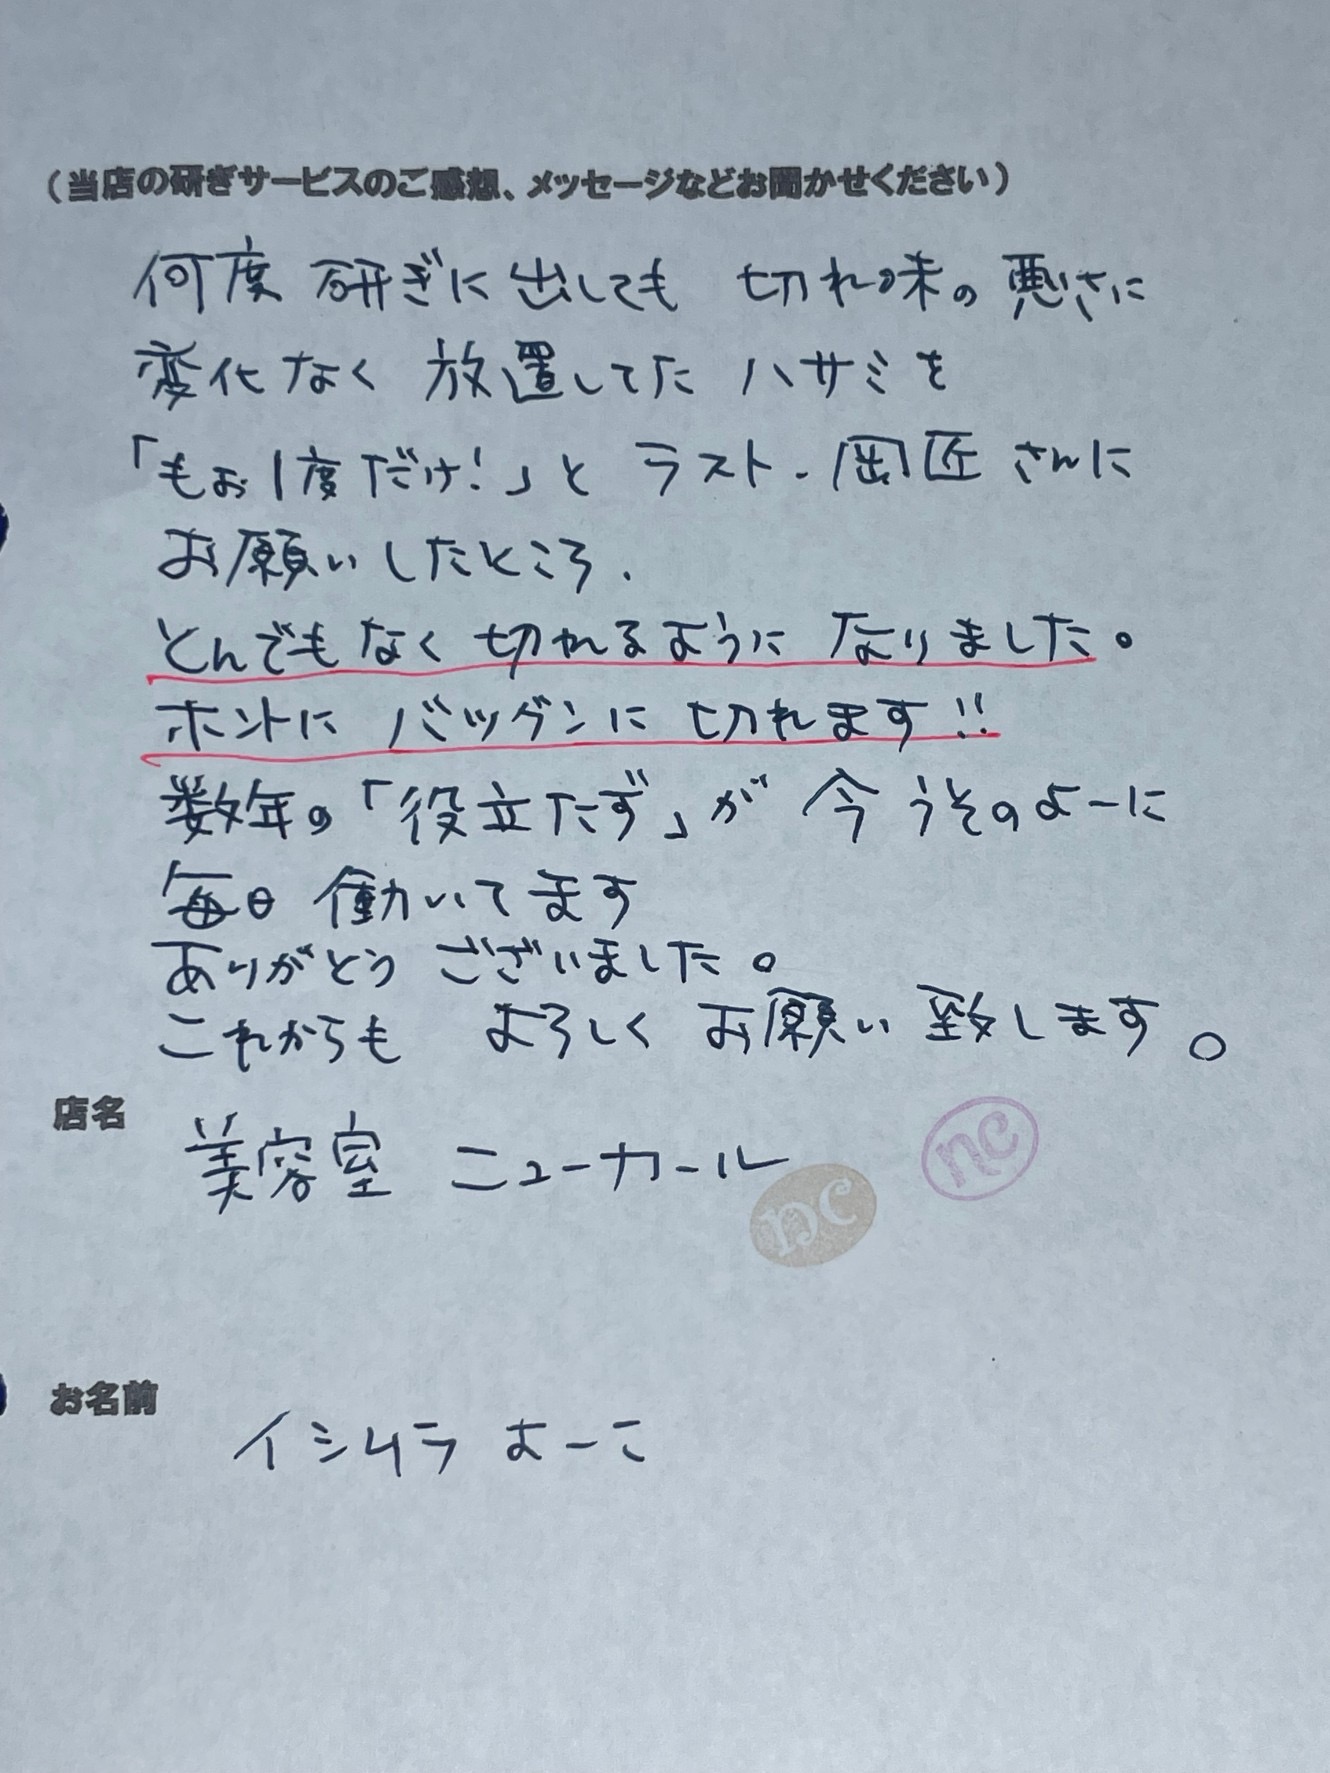 (当店の研ぎサービスのご感想、メッセージなどお聞かせください)
何度研ぎに出しても 切れ味の悪さに
変化なく 放置してた ハサミを
「もぉ1度だけ!」と ラスト、岡匠さんに
お願いしたところ、
とんでもなく 切れるように なりました。
ホントに バツグンに 切れます!!
数年の「役立たず」が 今 うそのよーに
毎日 働いてます
ありがとう ございました。
これからも よろしく お願い 致します。
店名
美容室 ニューカール
nc
nc
お名前
イシムラ よーこ